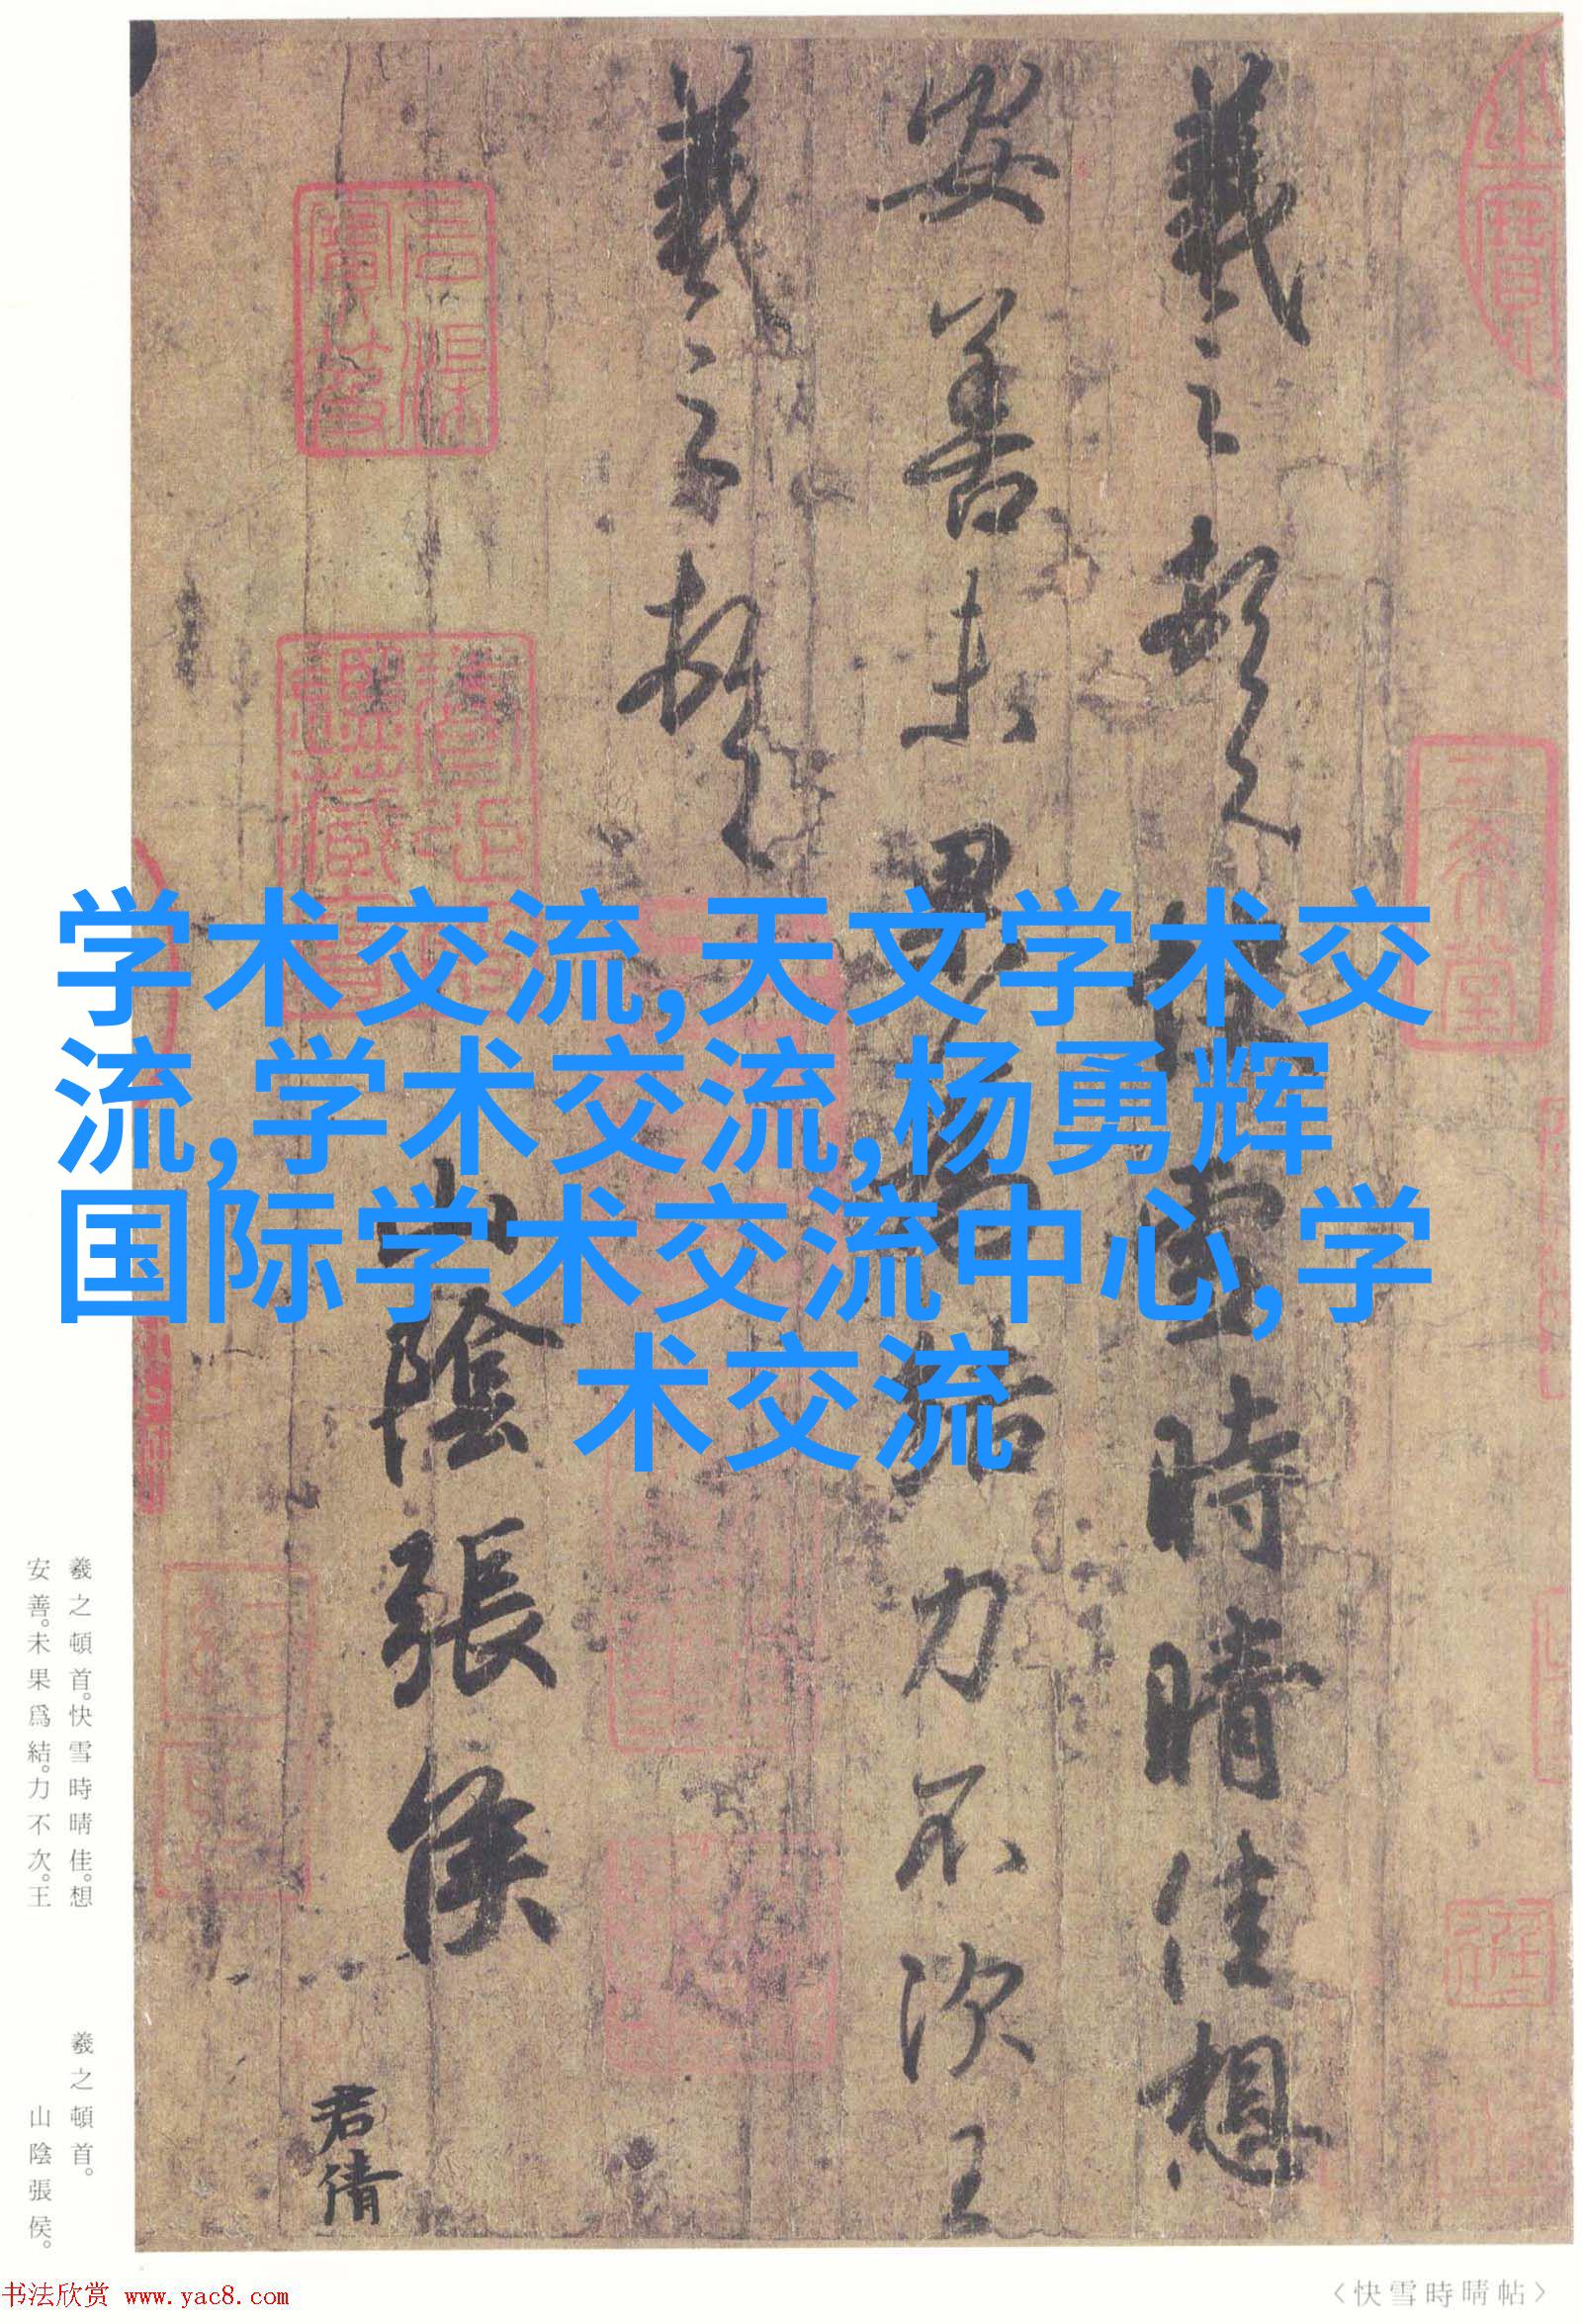 羲之頓首快雪時晴佳想
安善未果為結力不次王
羲之頓首
山陰張侯
君倩
三希堂
学术交流,天文学术交
流,学术交流,杨勇辉
国际学术交流中心,学
术交流
羲之頓首。快雪時晴佳。想
安善。未果爲結。力不次。王
羲之頓首。
山陰張侯。
书法欣赏 www.yac8.com
〈快雪時晴帖〉